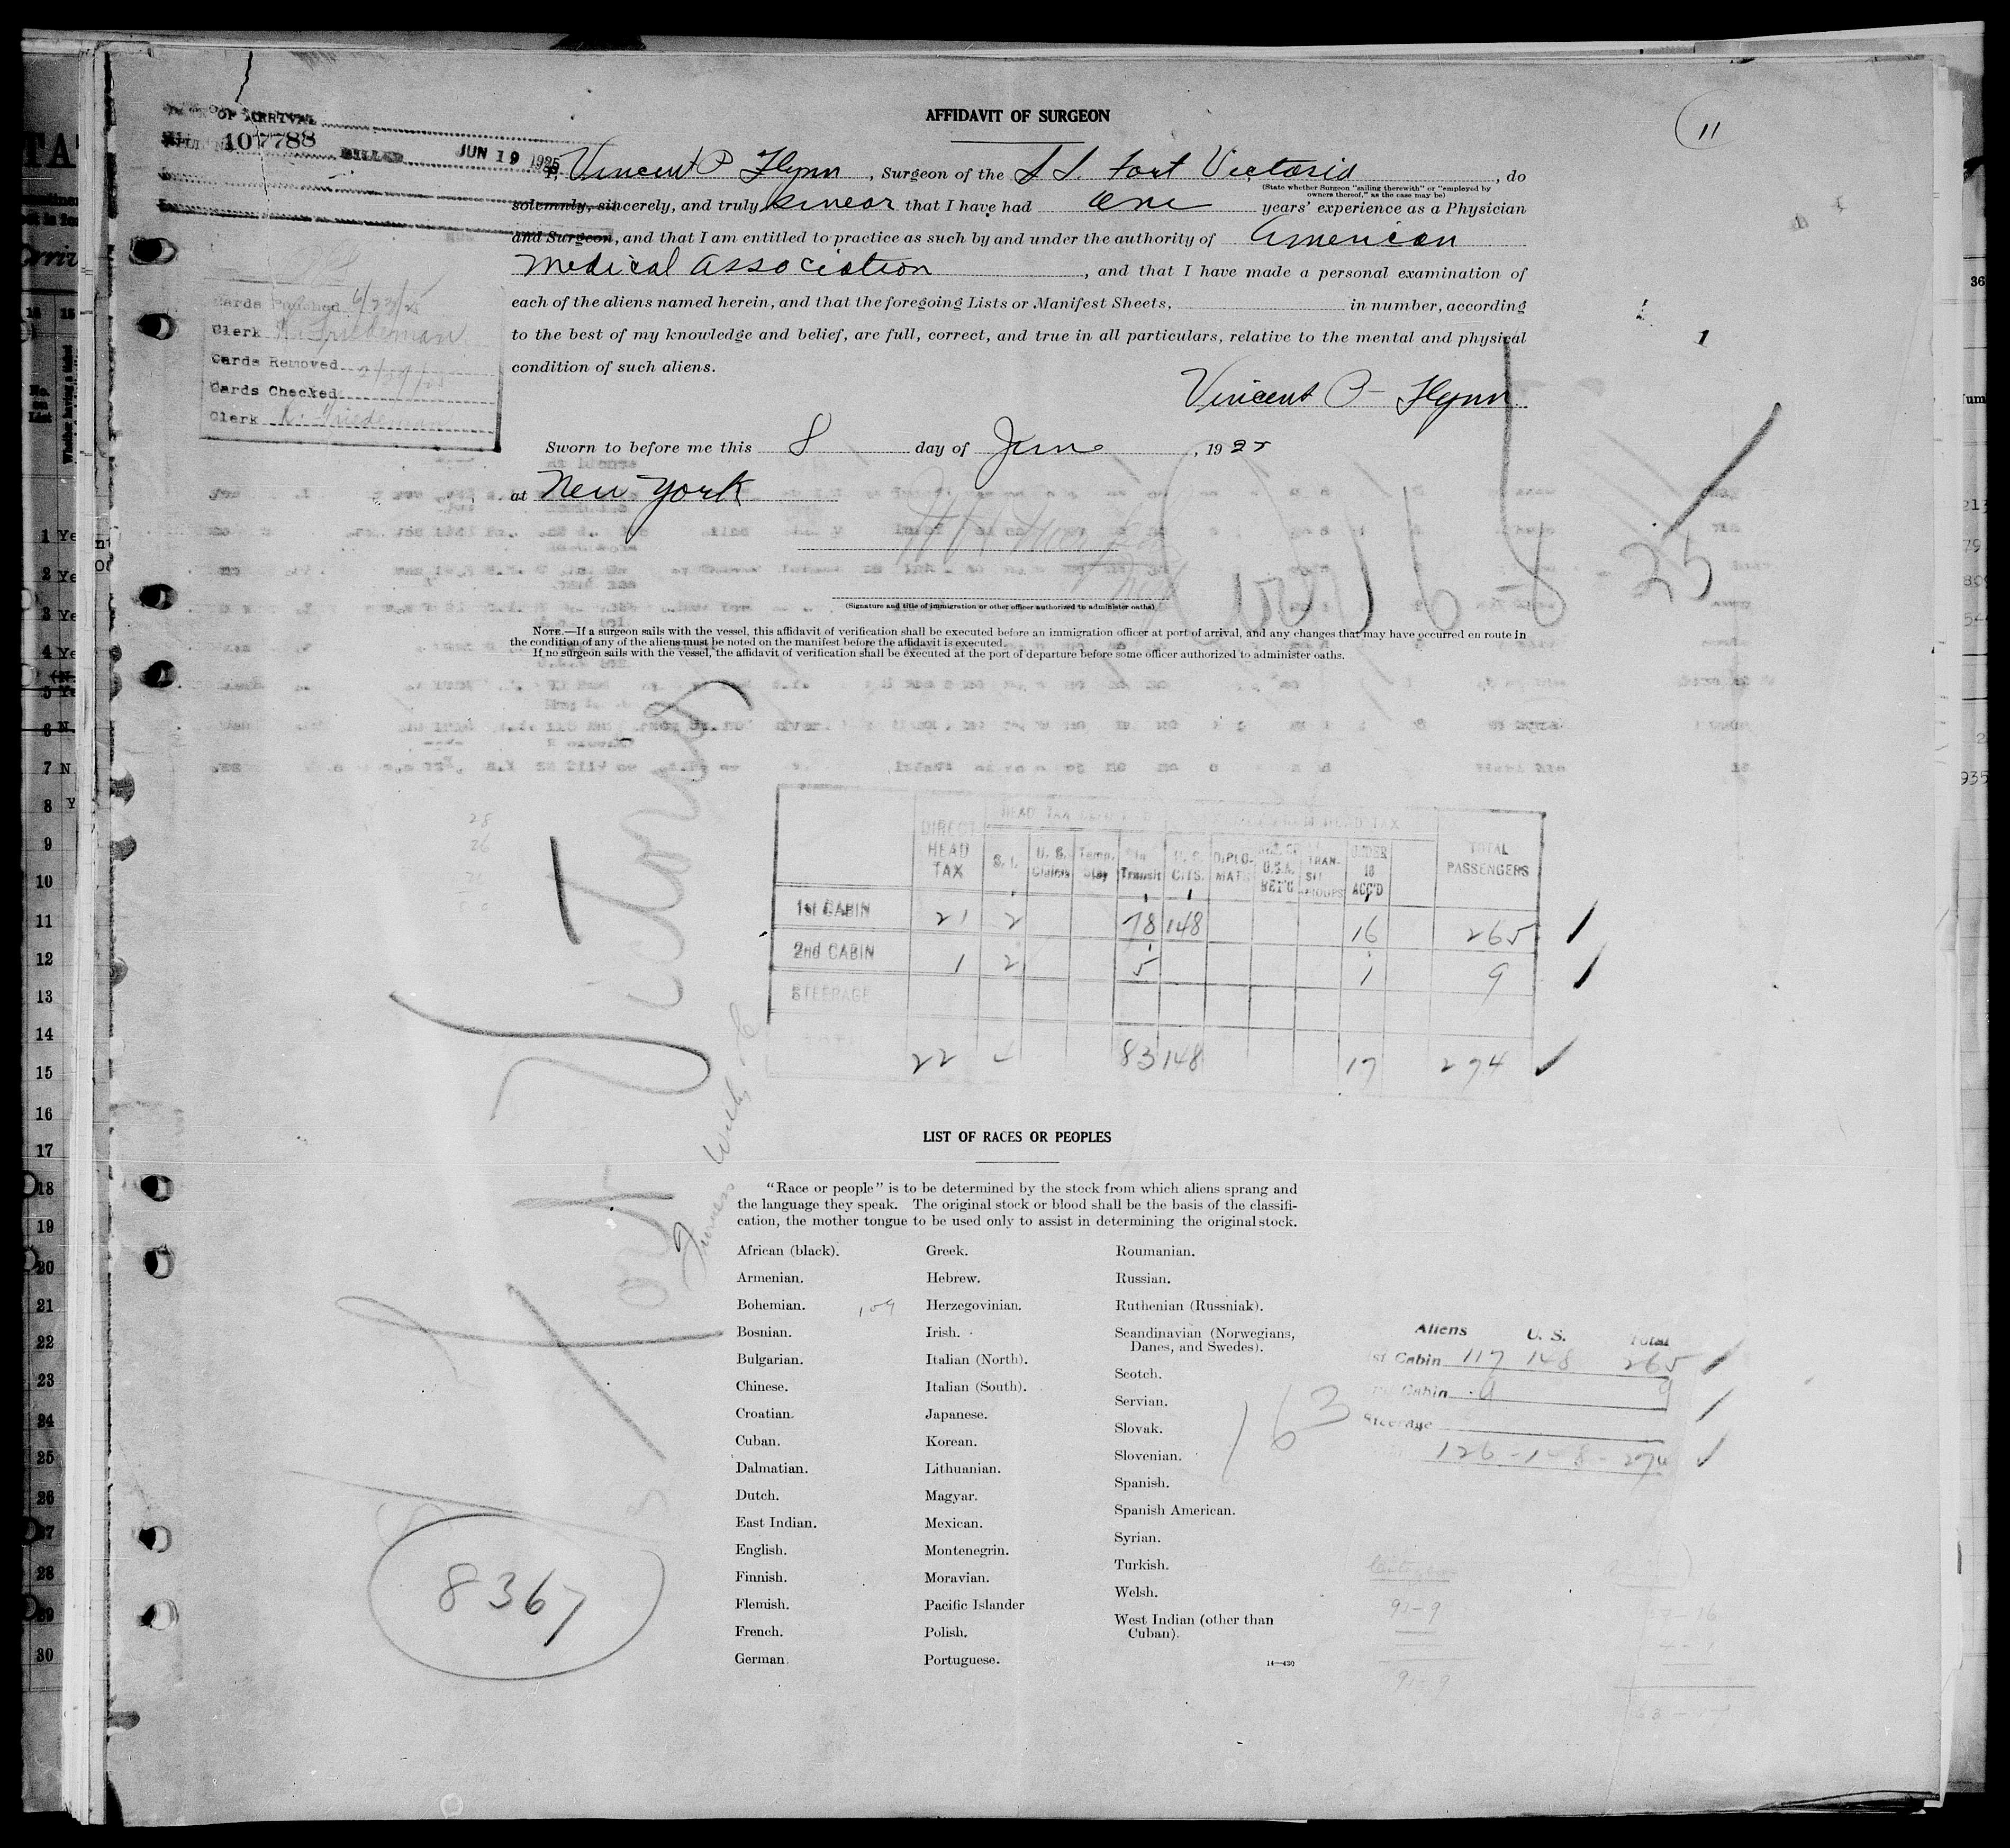 AFFIDAVIT OF SURGEON
11
OF ARRIVAL
107788
BILLED JUN 19 1925
I, Vincent P Flynn, Surgeon of the S S. Fort Victoria, do
(State whether Surgeon "sailing therewith" or "employed by owners thereof," as the case may be)
solemnly, sincerely, and truly swear that I have had One years' experience as a Physician
and Surgeon, and that I am entitled to practice as such by and under the authority of American
Medical Association, and that I have made a personal examination of
each of the aliens named herein, and that the foregoing Lists or Manifest Sheets, in number, according
to the best of my knowledge and belief, are full, correct, and true in all particulars, relative to the mental and physical
condition of such aliens.
Vincent P Flynn
Cards Punched 6/23/25
Clerk K. Friedeman
Cards Removed
Cards Checked
Clerk K. Friedeman
Sworn to before me this 8 day of June, 1925
at New York
(Signature and title of immigration or other officer authorized to administer oaths)
6-8-25
NOTE.—If a surgeon sails with the vessel, this affidavit of verification shall be executed before an immigration officer at port of arrival, and any changes that may have occurred en route in
the condition of any of the aliens must be noted on the manifest before the affidavit is executed.
If no surgeon sails with the vessel, the affidavit of verification shall be executed at the port of departure before some officer authorized to administer oaths.
Fort Victoria
Furness Withy
DIRECT HEAD TAX S. I. U. S. Temp. Stay In Transit U. S. CITS. DIPLOMATS U.S.A. RET'G TRANSIT GROUPS UNDER 16 ACC'D TOTAL PASSENGERS
HEAD TAX
1st CABIN 21 2 78 148 16 265
2nd CABIN 1 2 5 1 9
STEERAGE
22 4 83 148 17 274
LIST OF RACES OR PEOPLES
"Race or people" is to be determined by the stock from which aliens sprang and
the language they speak. The original stock or blood shall be the basis of the classifi-
cation, the mother tongue to be used only to assist in determining the original stock.
African (black).
Armenian.
Bohemian.
Bosnian.
Bulgarian.
Chinese.
Croatian.
Cuban.
Dalmatian.
Dutch.
East Indian.
English.
Finnish.
Flemish.
French.
German.
Greek.
Hebrew.
Herzegovinian.
Irish.
Italian (North).
Italian (South).
Japanese.
Korean.
Lithuanian.
Magyar.
Mexican.
Montenegrin.
Moravian.
Pacific Islander
Polish.
Portuguese.
Roumanian.
Russian.
Ruthenian (Russniak).
Scandinavian (Norwegians,
Danes, and Swedes).
Scotch.
Servian.
Slovak.
Slovenian.
Spanish.
Spanish American.
Syrian.
Turkish.
Welsh.
West Indian (other than
Cuban).
14—430
Aliens U. S. Total
1st Cabin 117 148 265
Cabin 9 9
Steerage
126 - 148 - 274
163
8367
91-9
91-9